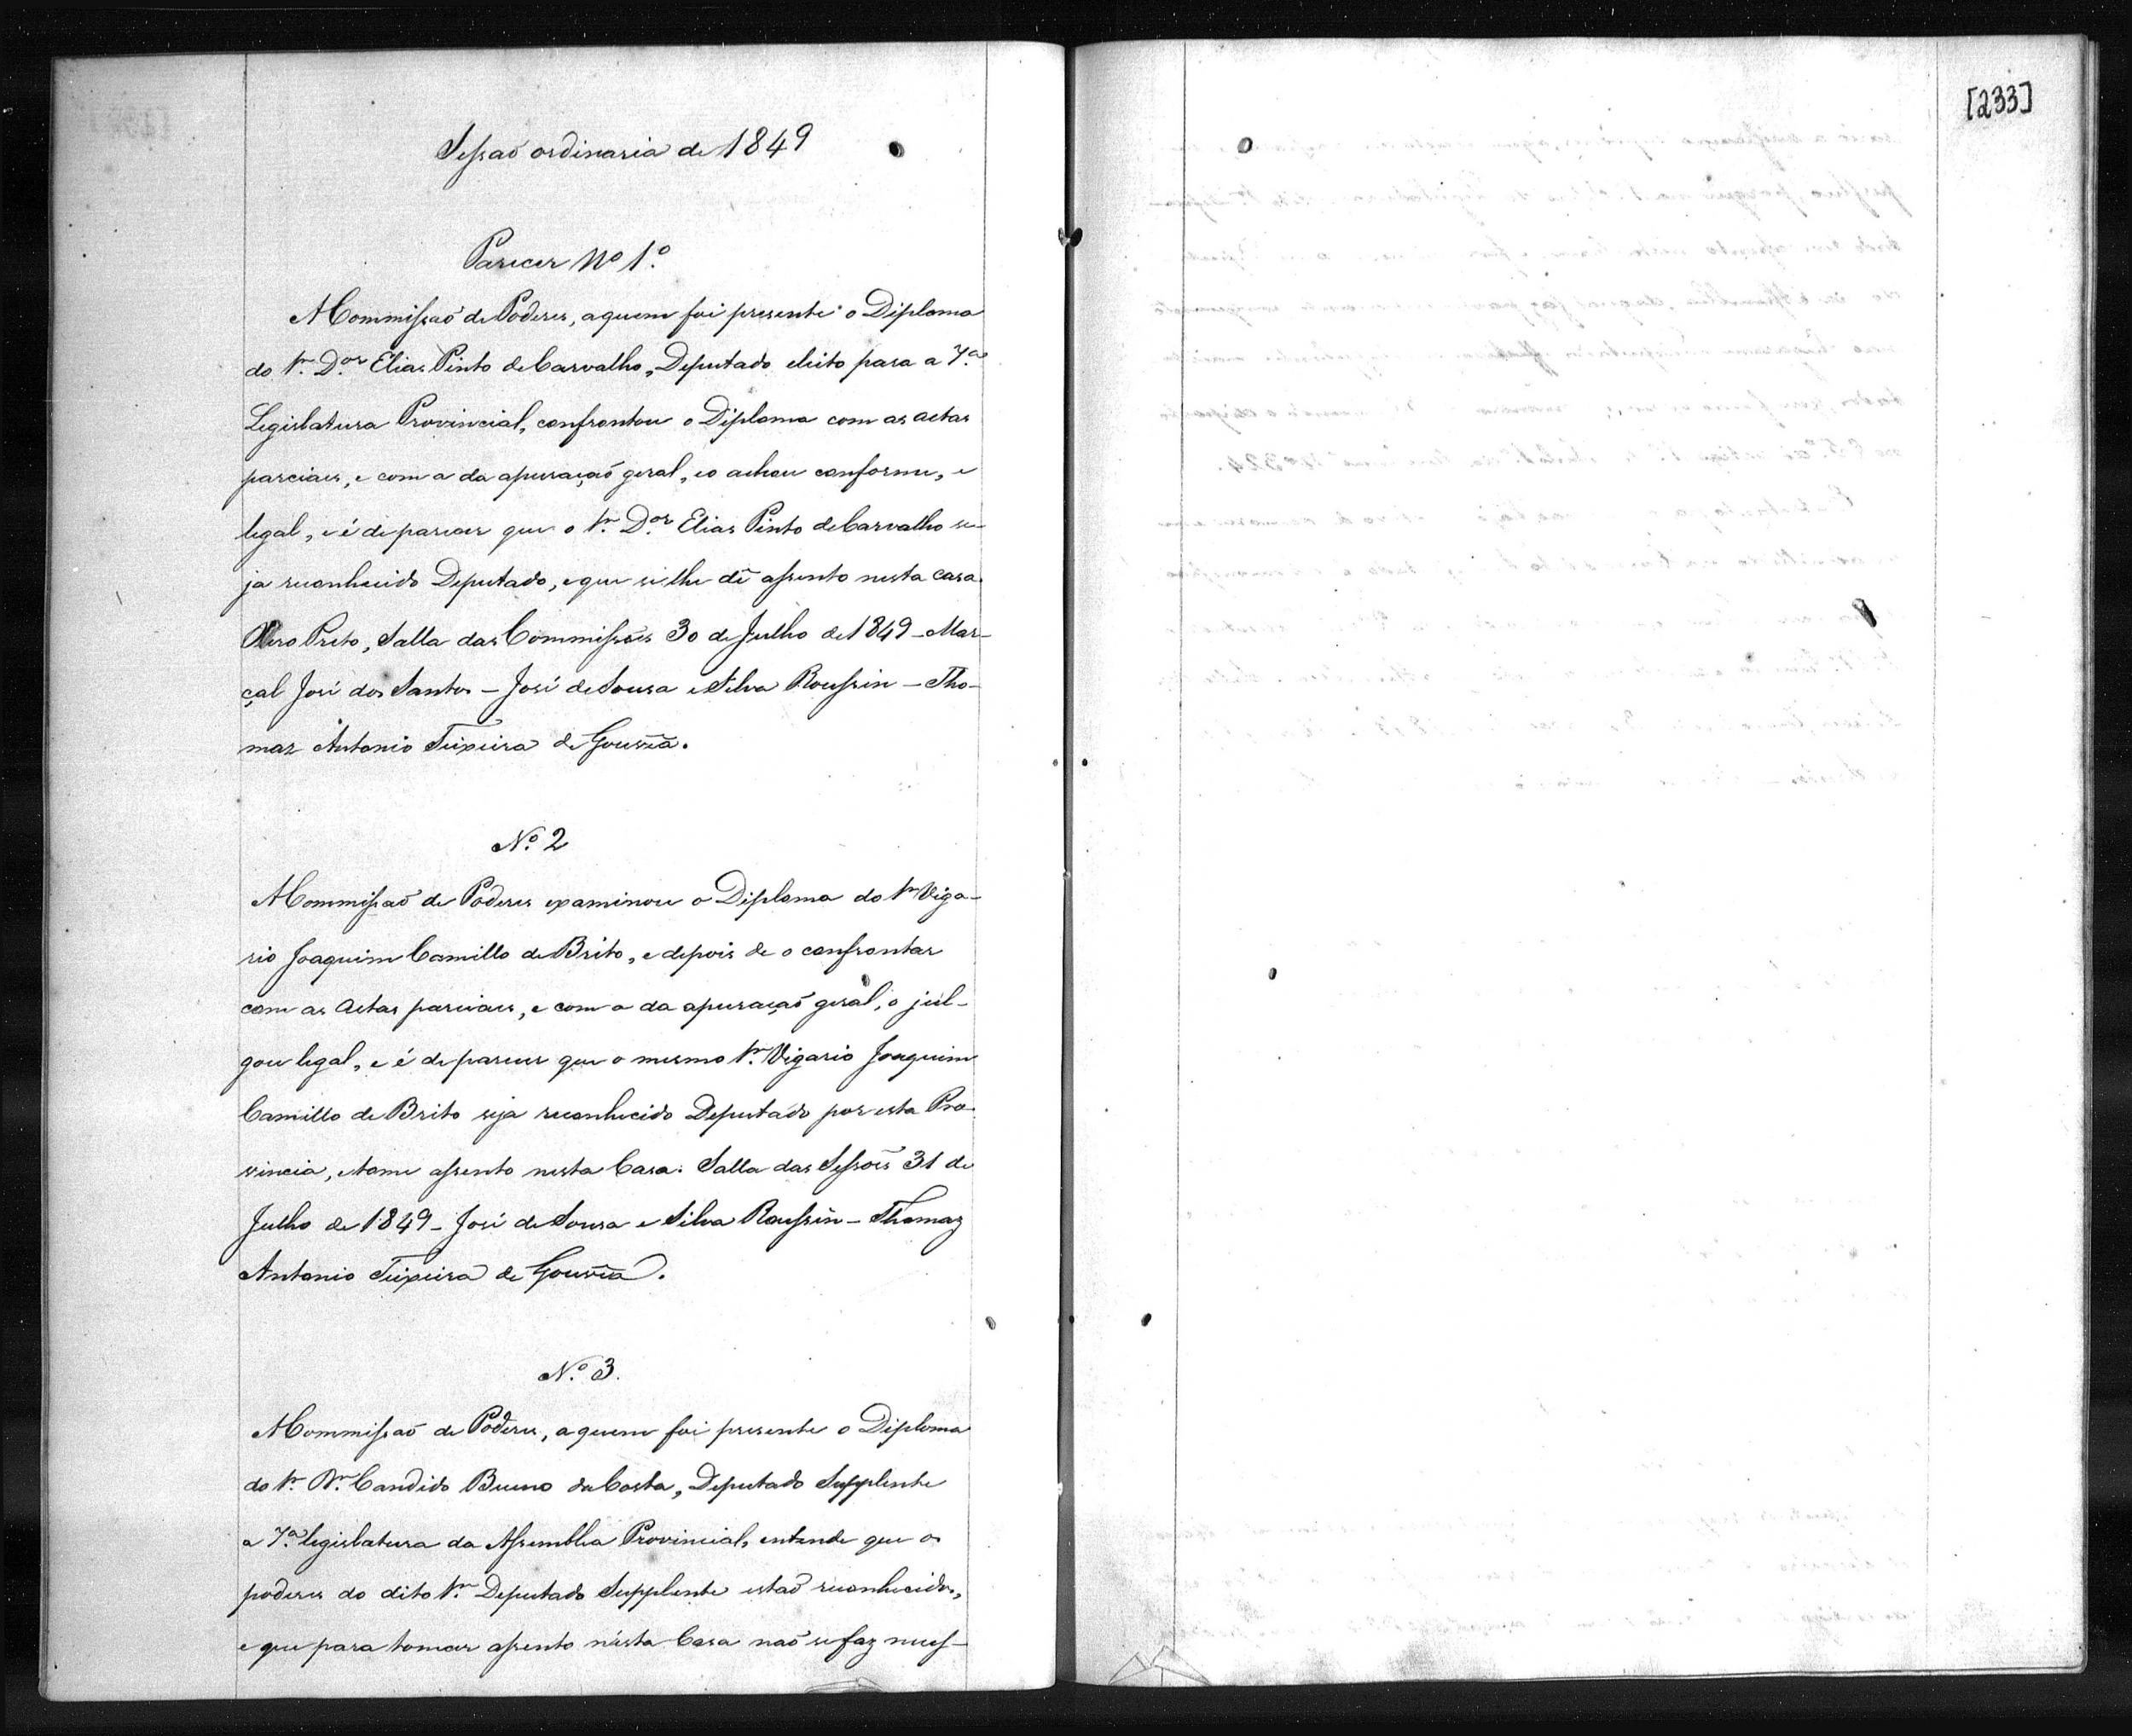 [233]
Sessaõ ordinaria de 1849
Parecer Nº 1º
A Commissaõ de Poderes, a quem foi presente o Diploma
do Sr. Dor. Elias Pinto de Carvalho, Deputado eleito para a 7ª
Legislatura Provincial, confrontou o Diploma com as actas
parciaes, e com a da apuraçaõ geral, e o achou conforme, e
legal, e é de parecer que o Sr. Dor. Elias Pinto de Carvalho se-
ja reconhecido Deputado, e que se lhe dê assento nesta casa.
Ouro Preto, Salla das Commissões 30 de Julho de 1849 - Mar-
çal José dos Santos - José de Sousa e Silva Roussin - Tho-
maz Antonio Teixeira de Gouvêa.
Nº 2
A Commissaõ de Poderes examinou o Diploma do Sr Viga-
rio Joaquim Camillo de Brito, e depois de o confrontar
com as Actas parciaes, e com a da apuraçaõ geral, o jul-
gou legal, e é de parecer que o mesmo Sr. Vigario Joaquim
Camillo de Brito seja reconhecido Deputado por esta Pro-
vincia, e tome assento nesta Casa. Salla das Sessões 31 de
Julho de 1849 - José de Sousa e Silva Roussin - Thomaz
Antonio Teixeira de Gouvêa.
Nº 3.
A Commissaõ de Poderes, a quem foi presente o Diploma
do Sr. Candido Bueno da Costa, Deputado Supplente
a 7ª legislatura da Assemblea Provincial, entende que os
poderes do dito Sr. Deputado Supplente estaõ reconhecidos,
e que para tomar assento nésta Casa naõ se faz neces-